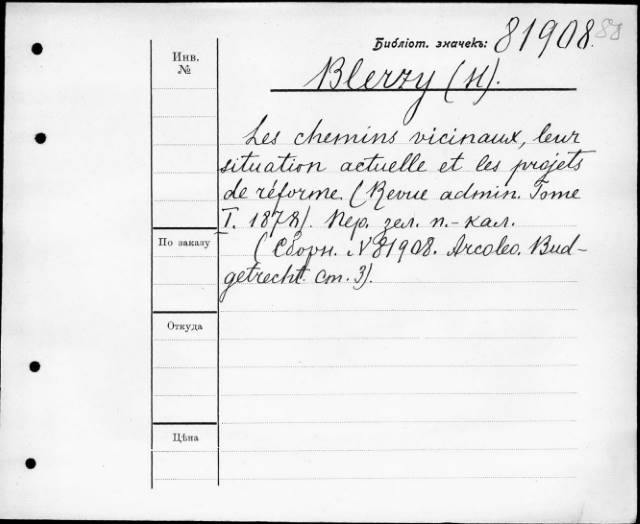 Библіот. значекъ: 81908.
Инв.
№
Blerzy (H).
Les chemins vicinaux, leur
situation actuelle et les projets
de réforme. (Revue admin. Tome
I. 1878). Пер. зел. п.-кал.
По заказу
(Сборн. № 81908. Arcoleo. Bud-
getrecht. Ст. 3).
Откуда
Цѣна